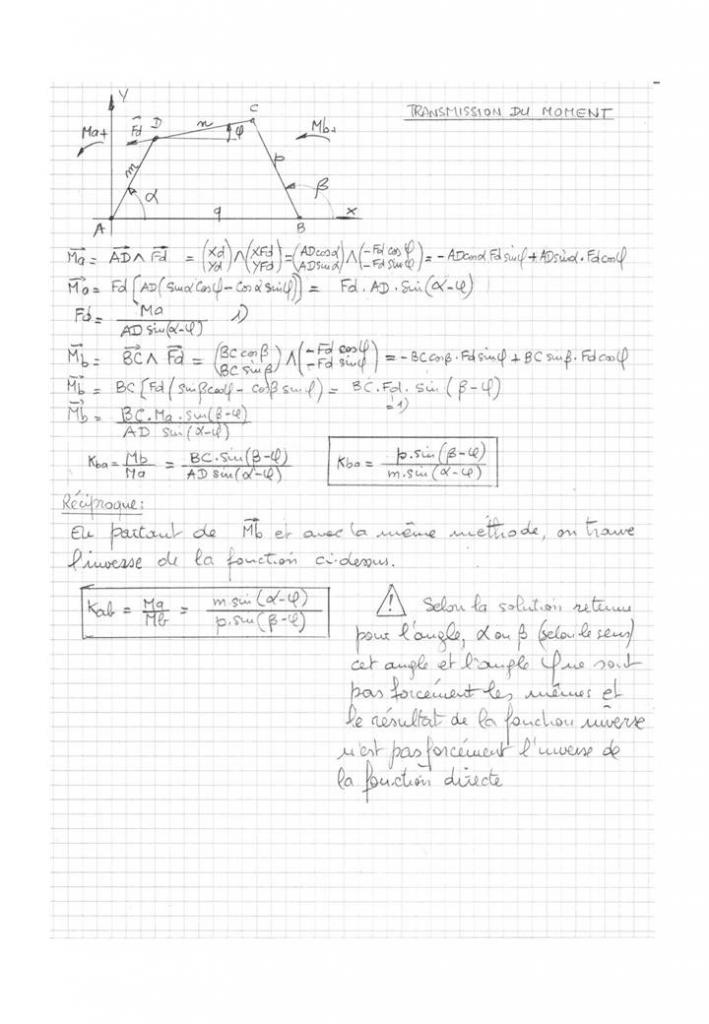 TRANSMISSION DU MOMENT
Y
C
D
Fd
n
φ
Ma+
Mb+
m
p
α
β
A
q
B
x
Ma = AD ∧ Fd = (Xd Yd) ∧ (XFd YFd) = (ADcosα ADsinα) ∧ (-Fd cosφ -Fd sinφ) = -ADcosα Fd sinφ + ADsinα . Fd cosφ
Ma = Fd [AD(sinα cosφ - cosα sinφ)] = Fd . AD . sin(α-φ)
Fd = Ma / AD sin(α-φ) 1)
Mb = BC ∧ Fd = (BC cosβ BC sinβ) ∧ (-Fd cosφ -Fd sinφ) = -BC cosβ . Fd sinφ + BC sinβ . Fd cosφ
Mb = BC [Fd (sinβ cosφ - cosβ sinφ) = BC . Fd . sin (β-φ)
= 1)
Mb = BC . Ma . sin(β-φ) / AD sin(α-φ)
Kba = Mb / Ma = BC . sin(β-φ) / AD sin(α-φ)
Kba = p.sin(β-φ) / m.sin(α-φ)
Réciproque :
En partant de Mb et avec la même méthode, on trouve
l'inverse de la fonction ci-dessus.
Kab = Ma / Mb = m.sin(α-φ) / p.sin(β-φ)
! Selon la solution retenue
pour l'angle, α ou β (selon le sens)
cet angle et l'angle φ ne sont
pas forcément les mêmes et
le résultat de la fonction inverse
n'est pas forcément l'inverse de
la fonction directe